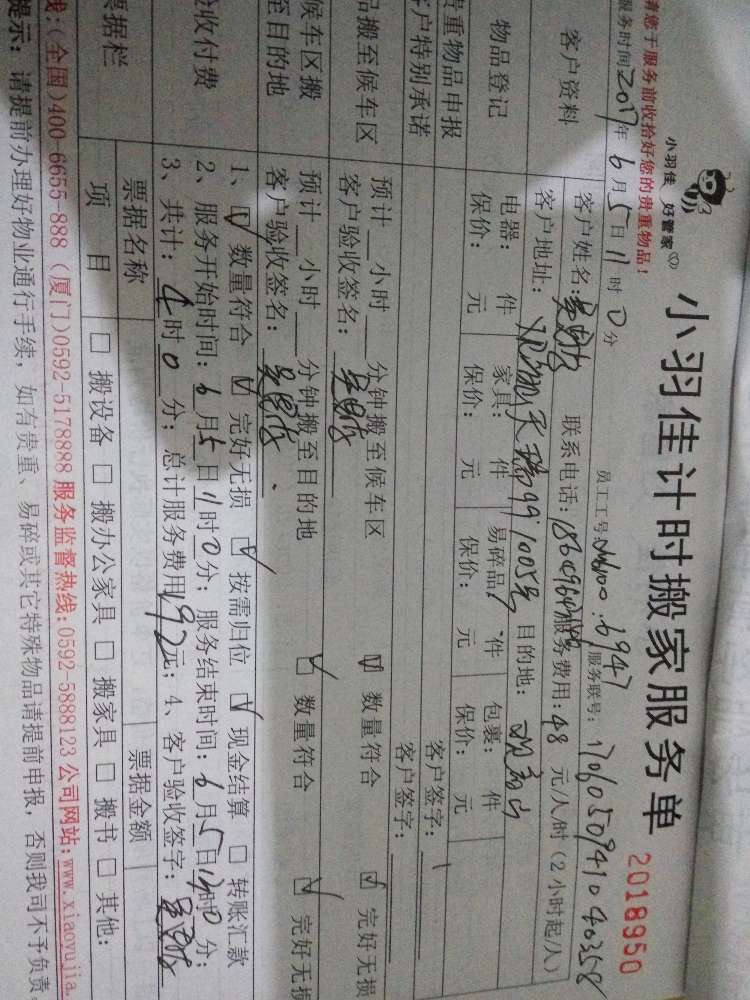 小羽佳 好管家
小羽佳计时搬家服务单
2018950
请您于服务前收拾好您的贵重物品!
员工工号: 6947 服务联号:
服务时间2017年6月5日11时0分
客户资料
客户姓名: 联系电话: 服务费用:48 元/人/时(2小时起/人)
客户地址: 99, 1005号 目的地:
物品登记
电器: 件 家具: 件 易碎品: 件 包裹: 件
保价: 元 保价: 元 保价: 元 保价: 元
贵重物品申报
客户签字:
客户特别承诺
客户签字:
品搬至候车区
预计 小时 分钟搬至候车区 数量符合 完好无损
客户验收签名:
候车区搬至目的地
预计 小时 分钟搬至目的地 数量符合 完好无损
客户验收签名:
验收付费
1、 数量符合 完好无损 按需归位 现金结算 转账汇款
2、服务开始时间:6月5日11时0分; 服务结束时间:6月5日 时0分;
3、共计:4时0分; 总计服务费用192元; 4、客户验收签字:
票据栏
票据名称 票据金额
项 目 搬设备 搬办公家具 搬家具 搬书 其他:
线:(全国)400-6655-888 (厦门)0592-5178888 服务监督热线:0592-5888123 公司网站:www.xiaoyujia.
提示: 请提前办理好物业通行手续, 如有贵重、易碎或其它特殊物品请提前申报, 否则我司不予负责。